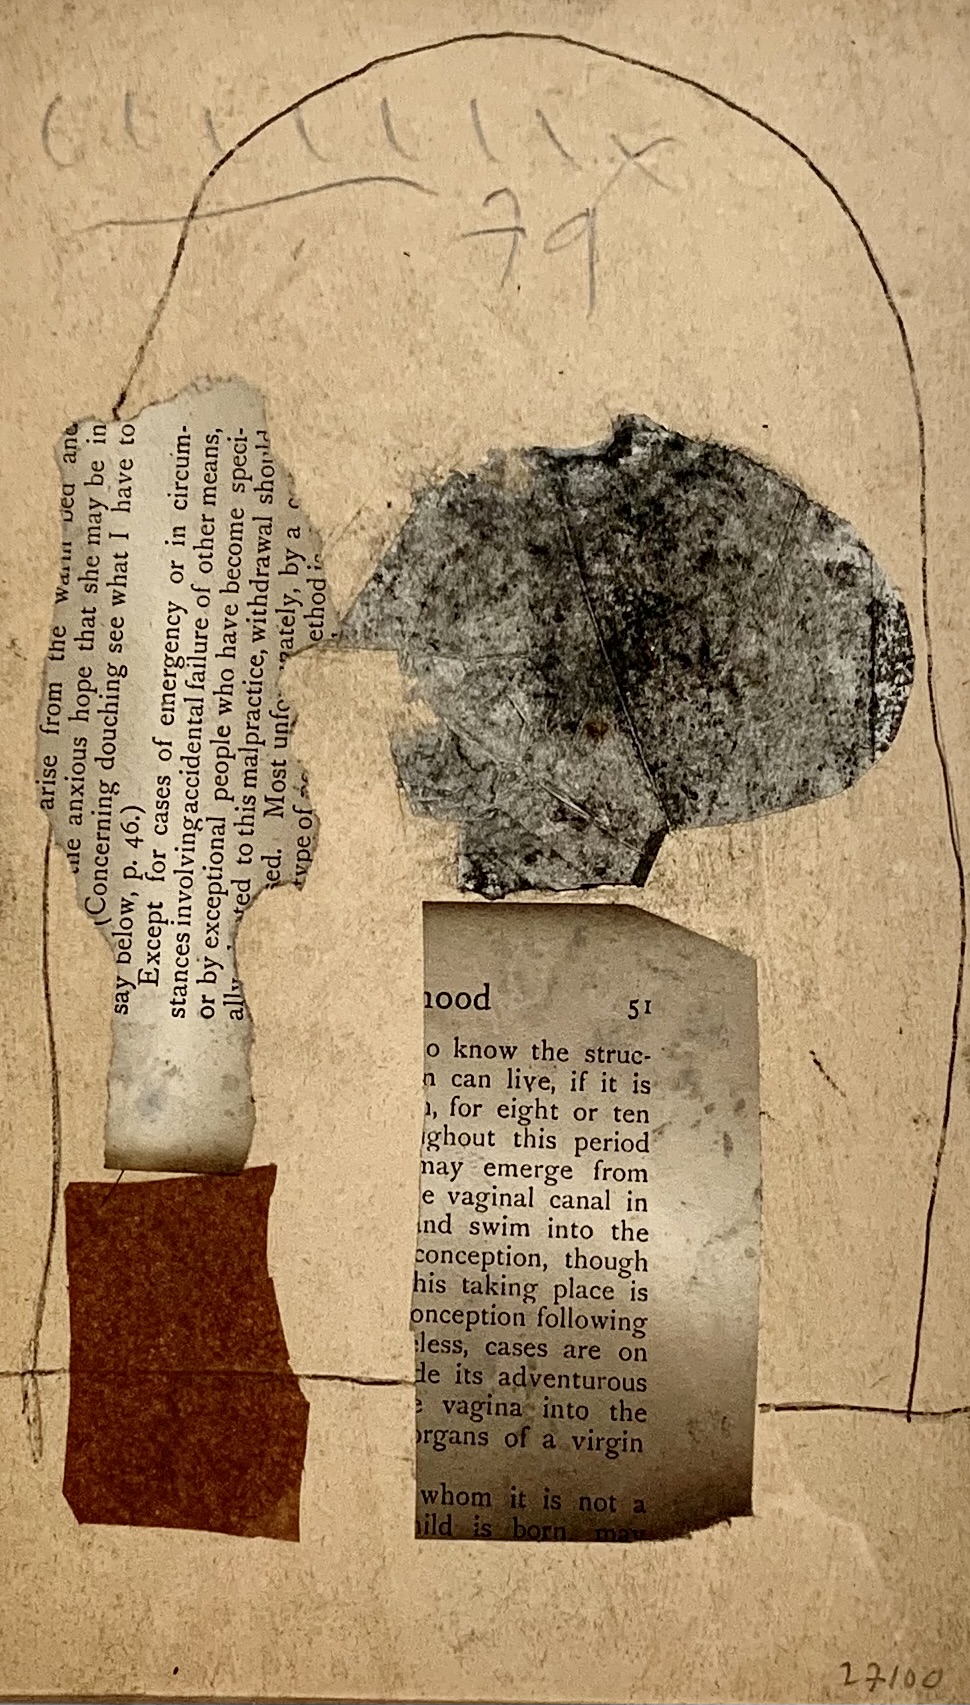 79
arise from the warm bed and
the anxious hope that she may be in
(Concerning douching see what I have to
say below, p. 46.)
Except for cases of emergency or in circum-
stances involving accidental failure of other means,
or by exceptional people who have become speci-
ally
ted to this malpractice, withdrawal should
ed. Most unfo
nately, by a
type of
ethod is
hood 51
o know the struc-
n can live, if it is
, for eight or ten
ghout this period
may emerge from
e vaginal canal in
and swim into the
conception, though
his taking place is
onception following
less, cases are on
de its adventurous
e vagina into the
organs of a virgin
whom it is not a
hild is born may
27/00